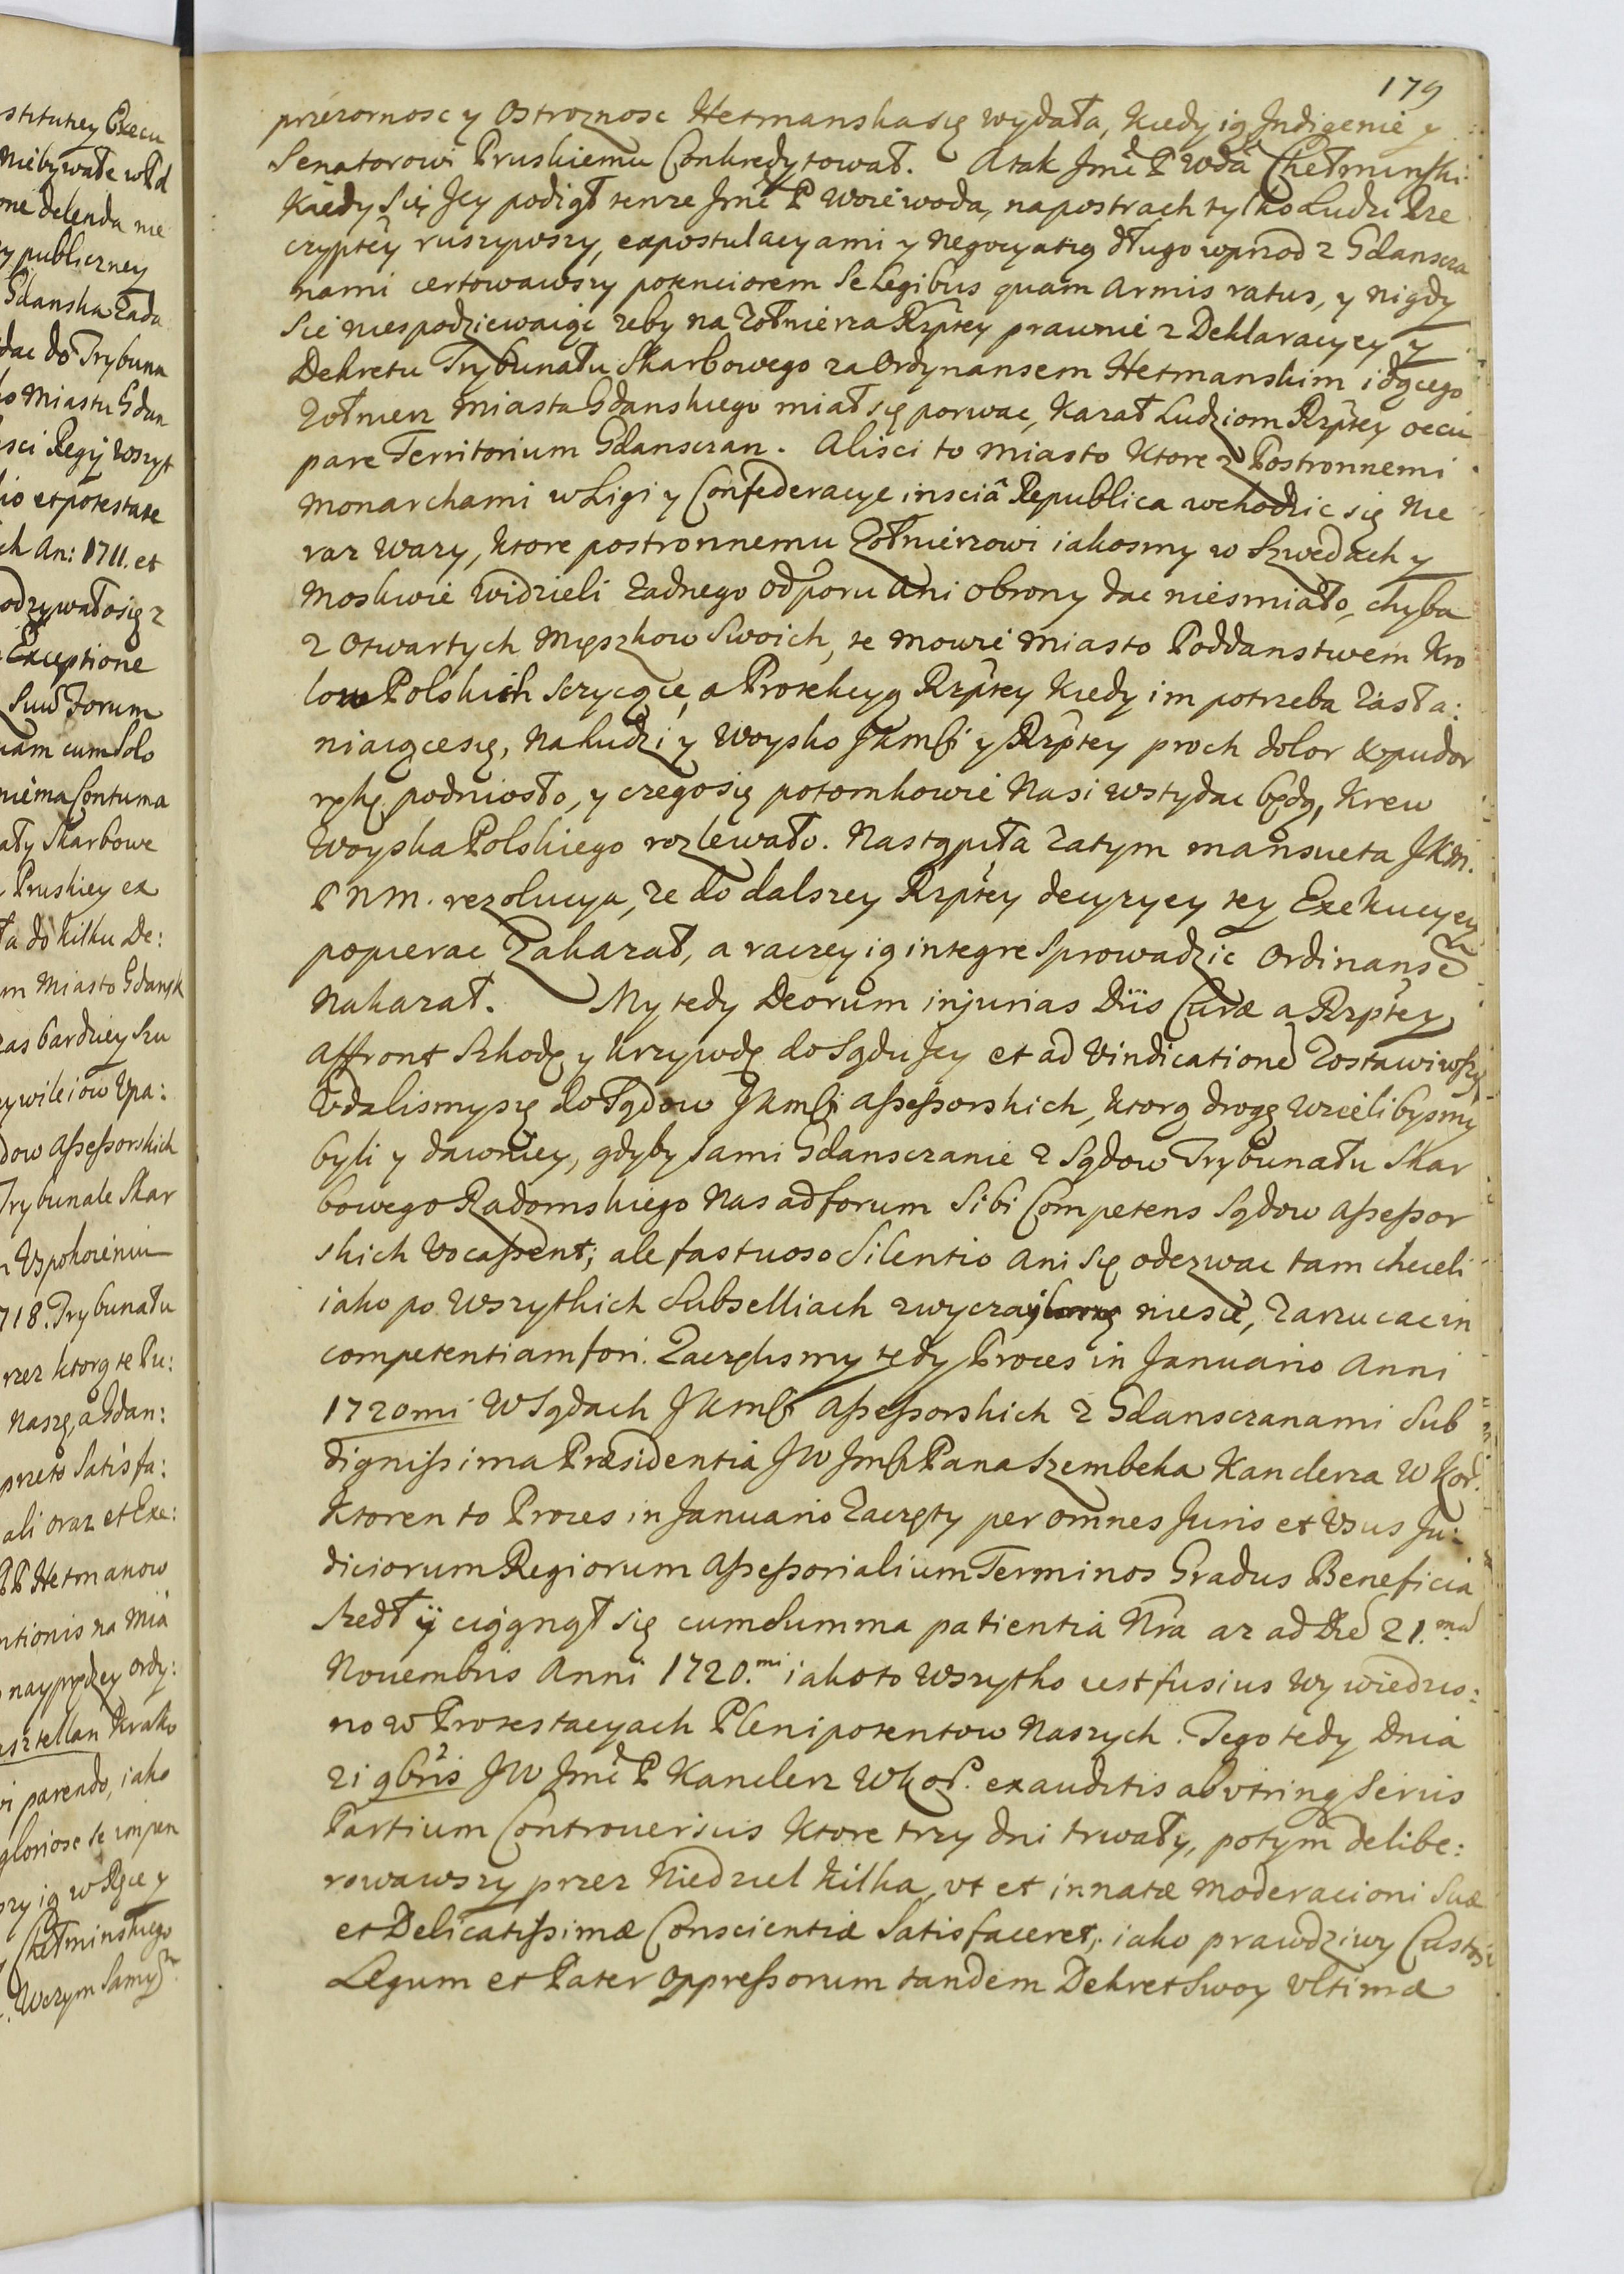 stitutiey Execu
niebywałe w Pd
one delenda nie
y publiczney
Gdanska Zada
dac do Trybuna
ko Miastu Gdan
sci Regÿ wszyt
io et potestate
ch An: 1711. et
odzywało się z
Exceptione
Suu Forum
uam cum Solo
nie ma Contuma
ały Skarbowe
Pruskiey ex
ła do kilku De:
m Miasto Gdansk
zas bardziey Szu
zywileiow Vpa:
dow assessorskich
Trybunale Skar
Vspokoieniu
718. Trybunału
rzez ktorą te Pu:
Naszę, a Gdan:
przeto Satisfa:
ali oraz et Exe:
PP Hetmanow
ntionis na Mia
naypręḑzey ordy:
asztellan Krako
vi parendo, iako
gloriose se impen
szy ią w Ręce y
Chełminskiego
Wczym Samym
179
przezornosc y Ostroznosc Hetmanska się wydała, Kiedy ią Indigenie y
Senatorowi Pruskiemu Conkredytował. Atak Jmć P Wda Chełminski:
Kiedy się Jey podiął tenze Jmć P Woiewoda, na postrach tylko Ludzi Rze
cryptey ruszywszy, expostulacyami y negocyatią długo wprzod z Gdanscza
nami certowawszy potenciorem Se Legibus quam Armis ratus, y nigdy
Sie niespodziewaiąc zeby na Zołnierza Rzptey prawnie z Deklaracyey y
Dekretu Trybunału Skarbowego za Ordynansem Hetmanskim idącego
Zołnierz Miasta Gdanskiego miał się porwac, Kazał Ludziom Rzptey occu
pare Territorium Gdansczan. Alisci to Miasto Ktore z Postronnemi
Monarchami w Ligi y Confederacye insciâ Republica wchodzic się nie
raz wazy, ktore postronnemu Zołnierzowi iakosmy w Szwedach y
Moskwie widzieli Zadnego odporu ani obrony dac niesmiało, chyba
z otwartych Męszkow Swoich, te mowie Miasto Poddanstwem Kro
low Polskich Sczycące, a Protekcyą Rzptey Kiedy im potrzeba Zasła:
niaiące się, na Ludzi y Woysko JKmsci y Rzptey proch dolor & pudor
rękę podniosło, y czego się potomkowie Nasi wstydac będą, Krew
Woyska Polskiego rozlewało. Nastąpiła Zatym mansueta JKM.
P N M. rezolucya, ze do dalszey Rzptey decyzyey tey Exekucyey
popierac Zakazał, a raczey ią integre Sprowadzic Ordinansem
Nakazał. My tedy Deorum injurias Diis Curæ a Rzptey
affront Szkodę y krzywdę do Sądu Jey et ad Vindicationem Zostawiwszy
Vdalismy się do Sądow JKmsci assessorskich, ktorą drogę wzielibysmy
byli y dawniey, gdyby sami Gdansczanie z Sądow Trybunału Skar
bowego Radomskiego Nas ad forum Sibi Competens Sądow assessor
skich Vocassent; ale fastuoso Silentio ani się odezwac tam chcieli
iako po Wszytkich Subselliach zwyczay niesie, Zarzucac in
competentiam fori. Zaczęlismy tedy Proces in Januario Anni
1720mi W Sądach JKmsci assessorskich z Gdansczanami Sub
dignissima Præsidentia JW Jmsci Pana Szembeka Kanclerza W Kor.
Ktoren to Proces in Januario Zaczęty per omnes Juris et Vsus Ju:
diciorum Regiorum assessorialium Terminos Gradus Beneficia
Szedł ÿ ciągnął się cum Summa patientia Nra az ad Die 21.ma
Nouembris Anni 1720.mi iako to Wszytko iest fusius Wywiedzio:
no w Protestacyach Plenipotentow Naszych. Tego tedy Dnia
21 9bris JW Jmć P Kanclerz W Kor. exauditis ab vtrinq Seriis
Partium Controuersiis Ktore trzy dni trwały, potym delibe:
rowawszy przez Niedziel kilka, vt et innatæ Moderacioni Suæ
et Delicatissimæ Conscientiæ Satisfaceret, iako prawdziwy Custos
Legum et Pater Oppressorum tandem Dekret Swoy Vltimæ